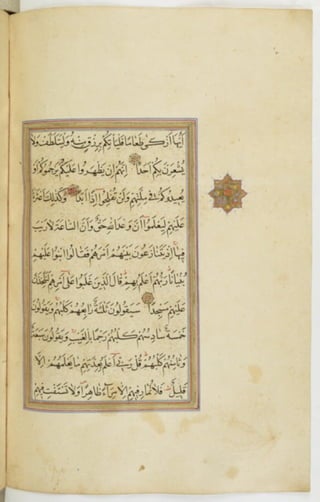 أَيُّهَا أَزْكَى طَعَامًا فَلْيَأْتِكُمْ بِرِزْقٍ مِنْهُ وَلْيَتَلَطَّفْ وَلَا
يُشْعِرَنَّ بِكُمْ أَحَدًا إِنَّهُمْ إِنْ يَظْهَرُوا عَلَيْكُمْ يَرْجُمُوكُمْ أَوْ
يُعِيدُوكُمْ فِي مِلَّتِهِمْ وَلَنْ تُفْلِحُوا إِذًا أَبَدًا وَكَذَلِكَ أَعْثَرْنَا
عَلَيْهِمْ لِيَعْلَمُوا أَنَّ وَعْدَ اللَّهِ حَقٌّ وَأَنَّ السَّاعَةَ لَا رَيْبَ
فِيهَا إِذْ يَتَنَازَعُونَ بَيْنَهُمْ أَمْرَهُمْ فَقَالُوا ابْنُوا عَلَيْهِمْ
بُنْيَانًا رَبُّهُمْ أَعْلَمُ بِهِمْ قَالَ الَّذِينَ غَلَبُوا عَلَى أَمْرِهِمْ لَنَتَّخِذَنَّ
عَلَيْهِمْ مَسْجِدًا سَيَقُولُونَ ثَلَاثَةٌ رَابِعُهُمْ كَلْبُهُمْ وَيَقُولُونَ
خَمْسَةٌ سَادِسُهُمْ كَلْبُهُمْ رَجْمًا بِالْغَيْبِ وَيَقُولُونَ سَبْعَةٌ
وَثَامِنُهُمْ كَلْبُهُمْ قُلْ رَبِّي أَعْلَمُ بِعِدَّتِهِمْ مَا يَعْلَمُهُمْ إِلَّا
قَلِيلٌ فَلَا تُمَارِ فِيهِمْ إِلَّا مِرَاءً ظَاهِرًا وَلَا تَسْتَفْتِ فِيهِمْ